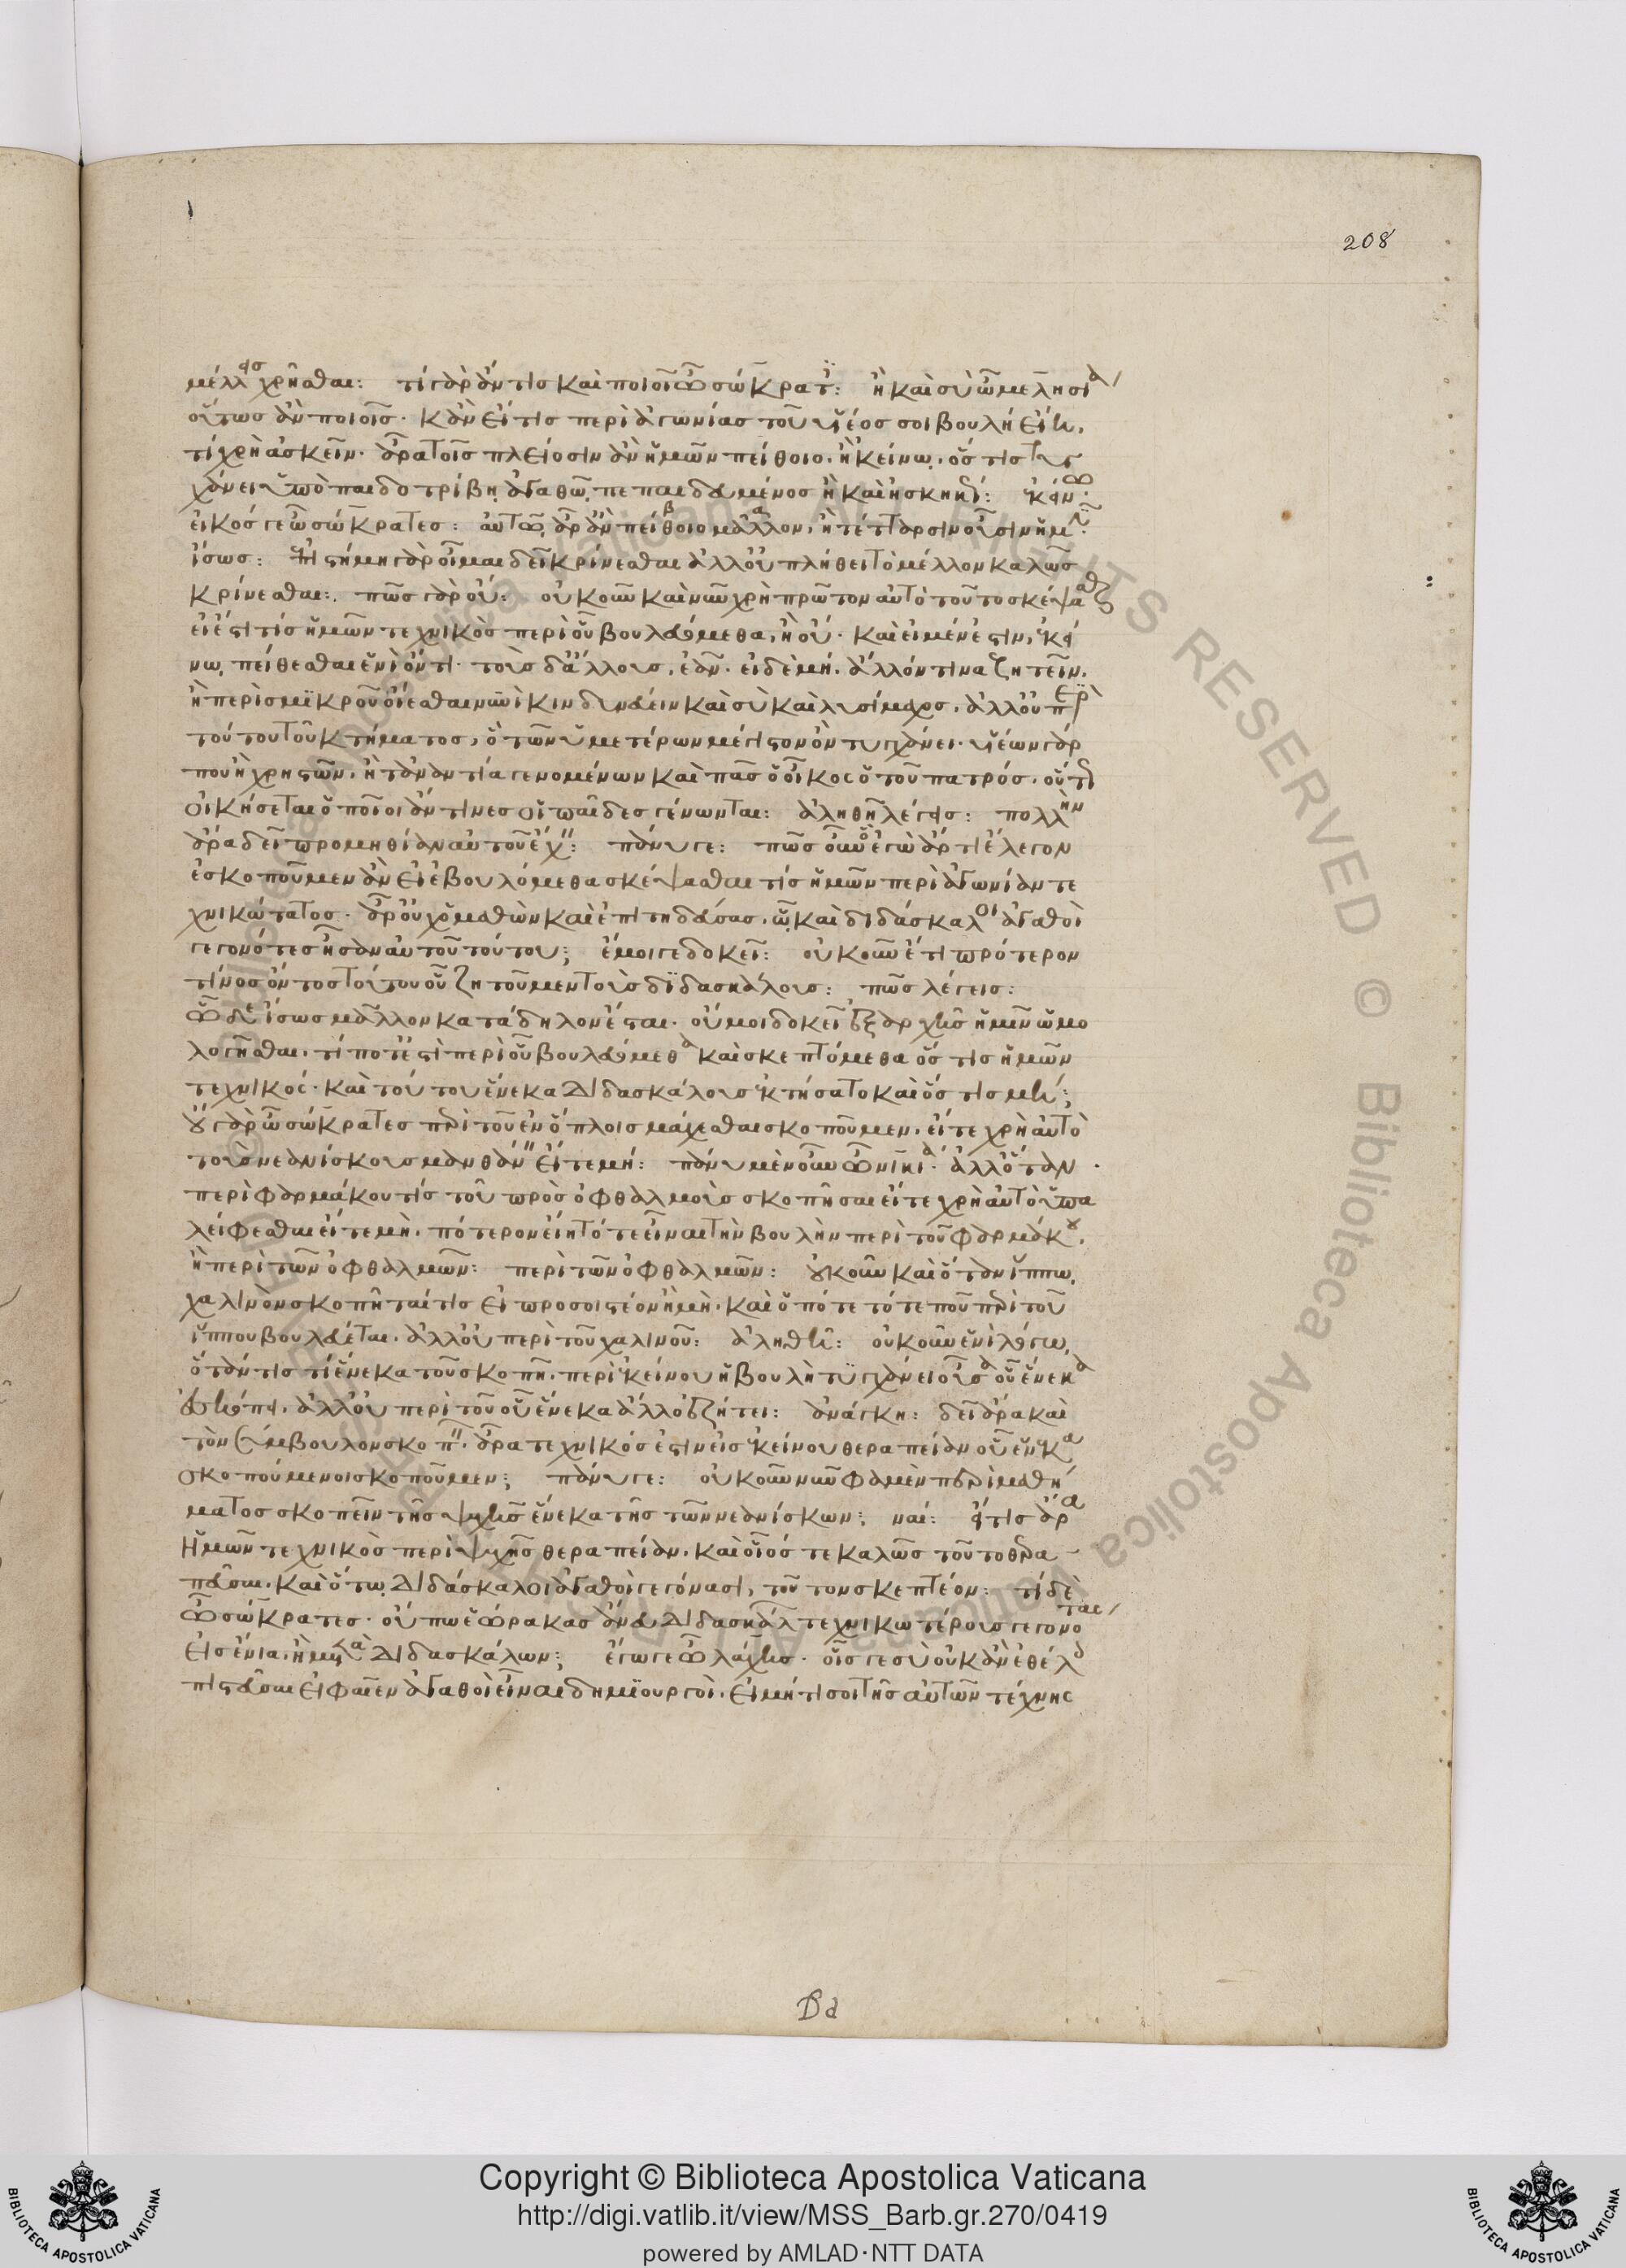 208
μέλλεις χρῆσθαι: τί γὰρ ἄν τις καὶ ποιοῖ ὦ σώκρατες: ἦ καὶ σὺ ὦ μελησία
οὕτως ἂν ποιοῖς· κἂν εἴ τις περὶ ἀγωνίας τοῦ υἱέος σοι βουλὴ εἴη,
τί χρὴ ἀσκεῖν· ἆρα τοῖς πλείοσιν ἂν ἡμῶν πείθοιο, ἢ κείνῳ, ὅς τις τυγ
χάνει ὑπὸ παιδοτρίβῃ ἀγαθῷ πεπαιδευμένος ἢ καὶ ἠσκηκώς: ἐκείνῳ
εἰκός γε ὦ σώκρατες: αὐτῷ ἆρ' ἂν πείθοιο μᾶλλον, ἢ τέτταρσιν οὖσιν ἡμῖν:
ἴσως: ἐπιστήμῃ γὰρ οἶμαι δεῖ κρίνεσθαι ἀλλ' οὐ πλήθει τὸ μέλλον καλῶς
κρίνεσθαι: πῶς γὰρ οὔ: οὐκοῦν καὶ νῦν χρὴ πρῶτον αὐτὸ τοῦτο σκέψασθαι
εἰ ἔστι τίς ἡμῶν τεχνικὸς περὶ οὗ βουλευόμεθα, ἢ οὔ· καὶ εἰ μὲν ἔστιν, ἐκεί
νῳ πείθεσθαι ἑνὶ ὄντι· τοὺς δ' ἄλλους, ἐᾶν· εἰ δὲ μή, ἄλλόν τινα ζητεῖν.
ἢ περὶ σμικροῦ οἴεσθαι νυνὶ κινδυνεύειν καὶ σὺ καὶ λυσίμαχος, ἀλλ' οὐ περὶ
τούτου τοῦ κτήματος, ὃ τῶν ὑμετέρων μέγιστον ὂν τυγχάνει· υἱέων γάρ
που ἢ χρηστῶν, ἢ τἀναντία γενομένων καὶ πᾶς ὁ οἶκος ὁ τοῦ πατρός, οὕτως
οἰκήσεται ὁποῖοι ἄν τινες οἱ παῖδες γένωνται: ἀληθῆ λέγεις: πολλὴν
ἄρα δεῖ προμηθίαν αὐτοῦ ἔχειν: πάνυ γε: πῶς οὖν ὃ ἐγὼ ἄρτι ἔλεγον
ἐσκοποῦμεν ἂν εἰ ἐβουλόμεθα σκέψασθαι τίς ἡμῶν περὶ ἀγωνίαν τε
χνικώτατος· ἆρ' οὐχ ὁ μαθὼν καὶ ἐπιτηδεύσας, ᾧ καὶ διδάσκαλοι ἀγαθοὶ
γεγονότες ἦσαν αὐτοῦ τούτου; ἔμοιγε δοκεῖ: οὐκοῦν ἔτι πρότερον
τίνος ὄντος τούτου οὗ ζητοῦμεν τοὺς διδασκάλους: πῶς λέγεις:
ὧδε ἴσως μᾶλλον κατάδηλον ἔσται· οὔ μοι δοκεῖ ἐξ ἀρχῆς ἡμῖν ὡμο
λογῆσθαι, τί ποτ' ἔστι περὶ οὗ βουλευόμεθα καὶ σκεπτόμεθα ὅς τις ἡμῶν
τεχνικός· καὶ τούτου ἕνεκα διδασκάλους ἐκτήσατο καὶ ὅς τις μή;
οὐ γὰρ ὦ σώκρατες περὶ τοῦ ἐν ὅπλοις μάχεσθαι σκοποῦμεν, εἴτε χρὴ αὐτὸ
τοὺς νεανίσκους μανθάνειν εἴτε μή: πάνυ μὲν οὖν ὦ νικία· ἀλλ' ὅταν
περὶ φαρμάκου τίς του πρὸς ὀφθαλμοὺς σκοπῆσαι εἴτε χρὴ αὐτὸ ὑπα
λείφεσθαι εἴτε μὴ, πότερον εἴη τότε εἶναι τὴν βουλὴν περὶ τοῦ φαρμάκου,
ἢ περὶ τῶν ὀφθαλμῶν: περὶ τῶν ὀφθαλμῶν: οὐκοῦν καὶ ὅταν ἵππῳ
χαλινὸν σκοπῆταί τις εἰ προσοιστέον ἢ μὴ, καὶ ὁπότε τότε που περὶ τοῦ
ἵππου βουλεύεται, ἀλλ' οὐ περὶ τοῦ χαλινοῦ: ἀληθῆ: οὐκοῦν ἑνὶ λόγῳ
ὅταν τις τὶ ἕνεκα τοῦ σκοπῇ, περὶ ἐκείνου ἡ βουλὴ τυγχάνει οὖσα οὗ ἕνεκα
ἐσκόπει, ἀλλ' οὐ περὶ τοῦ οὗ ἕνεκα ἄλλο ἐζήτει: ἀνάγκη: δεῖ ἄρα καὶ
τὸν σύμβουλον σκοπεῖν, ἆρα τεχνικός ἐστιν εἰς ἐκείνου θεραπείαν οὗ ἕνεκα
σκοπούμενοι σκοποῦμεν; πάνυ γε: οὐκοῦν νῦν φαμὲν περὶ μαθή
ματος σκοπεῖν τῆς ψυχῆς ἕνεκα τῆς τῶν νεανίσκων; ναί: εἴ τις ἄρα
ἡμῶν τεχνικὸς περὶ ψυχῆς θεραπείαν, καὶ οἷός τε καλῶς τοῦτο θερα
πεῦσαι, καὶ ὅτῳ διδάσκαλοι ἀγαθοὶ γεγόνασι, τοῦτον σκεπτέον: τί δὲ
ὦ σώκρατες· οὔπω ἑώρακας ἄνευ διδασκάλων τεχνικωτέρους γεγονότας
εἰς ἔνια, ἢ μετὰ διδασκάλων; ἔγωγε ὦ λάχης· οἷς γε σὺ οὐκ ἂν ἐθέλοις
πιστεῦσαι εἰ φαῖεν ἀγαθοὶ εἶναι δημιουργοὶ, εἰ μή τι σοι τῆς αὑτῶν τέχνης
Copyright © Biblioteca Apostolica Vaticana
http://digi.vatlib.it/view/MSS_Barb.gr.270/0419
powered by AMLAD·NTT DATA
BIBLIOTECA APOSTOLICA VATICANA
BIBLIOTECA APOSTOLICA VATICANA